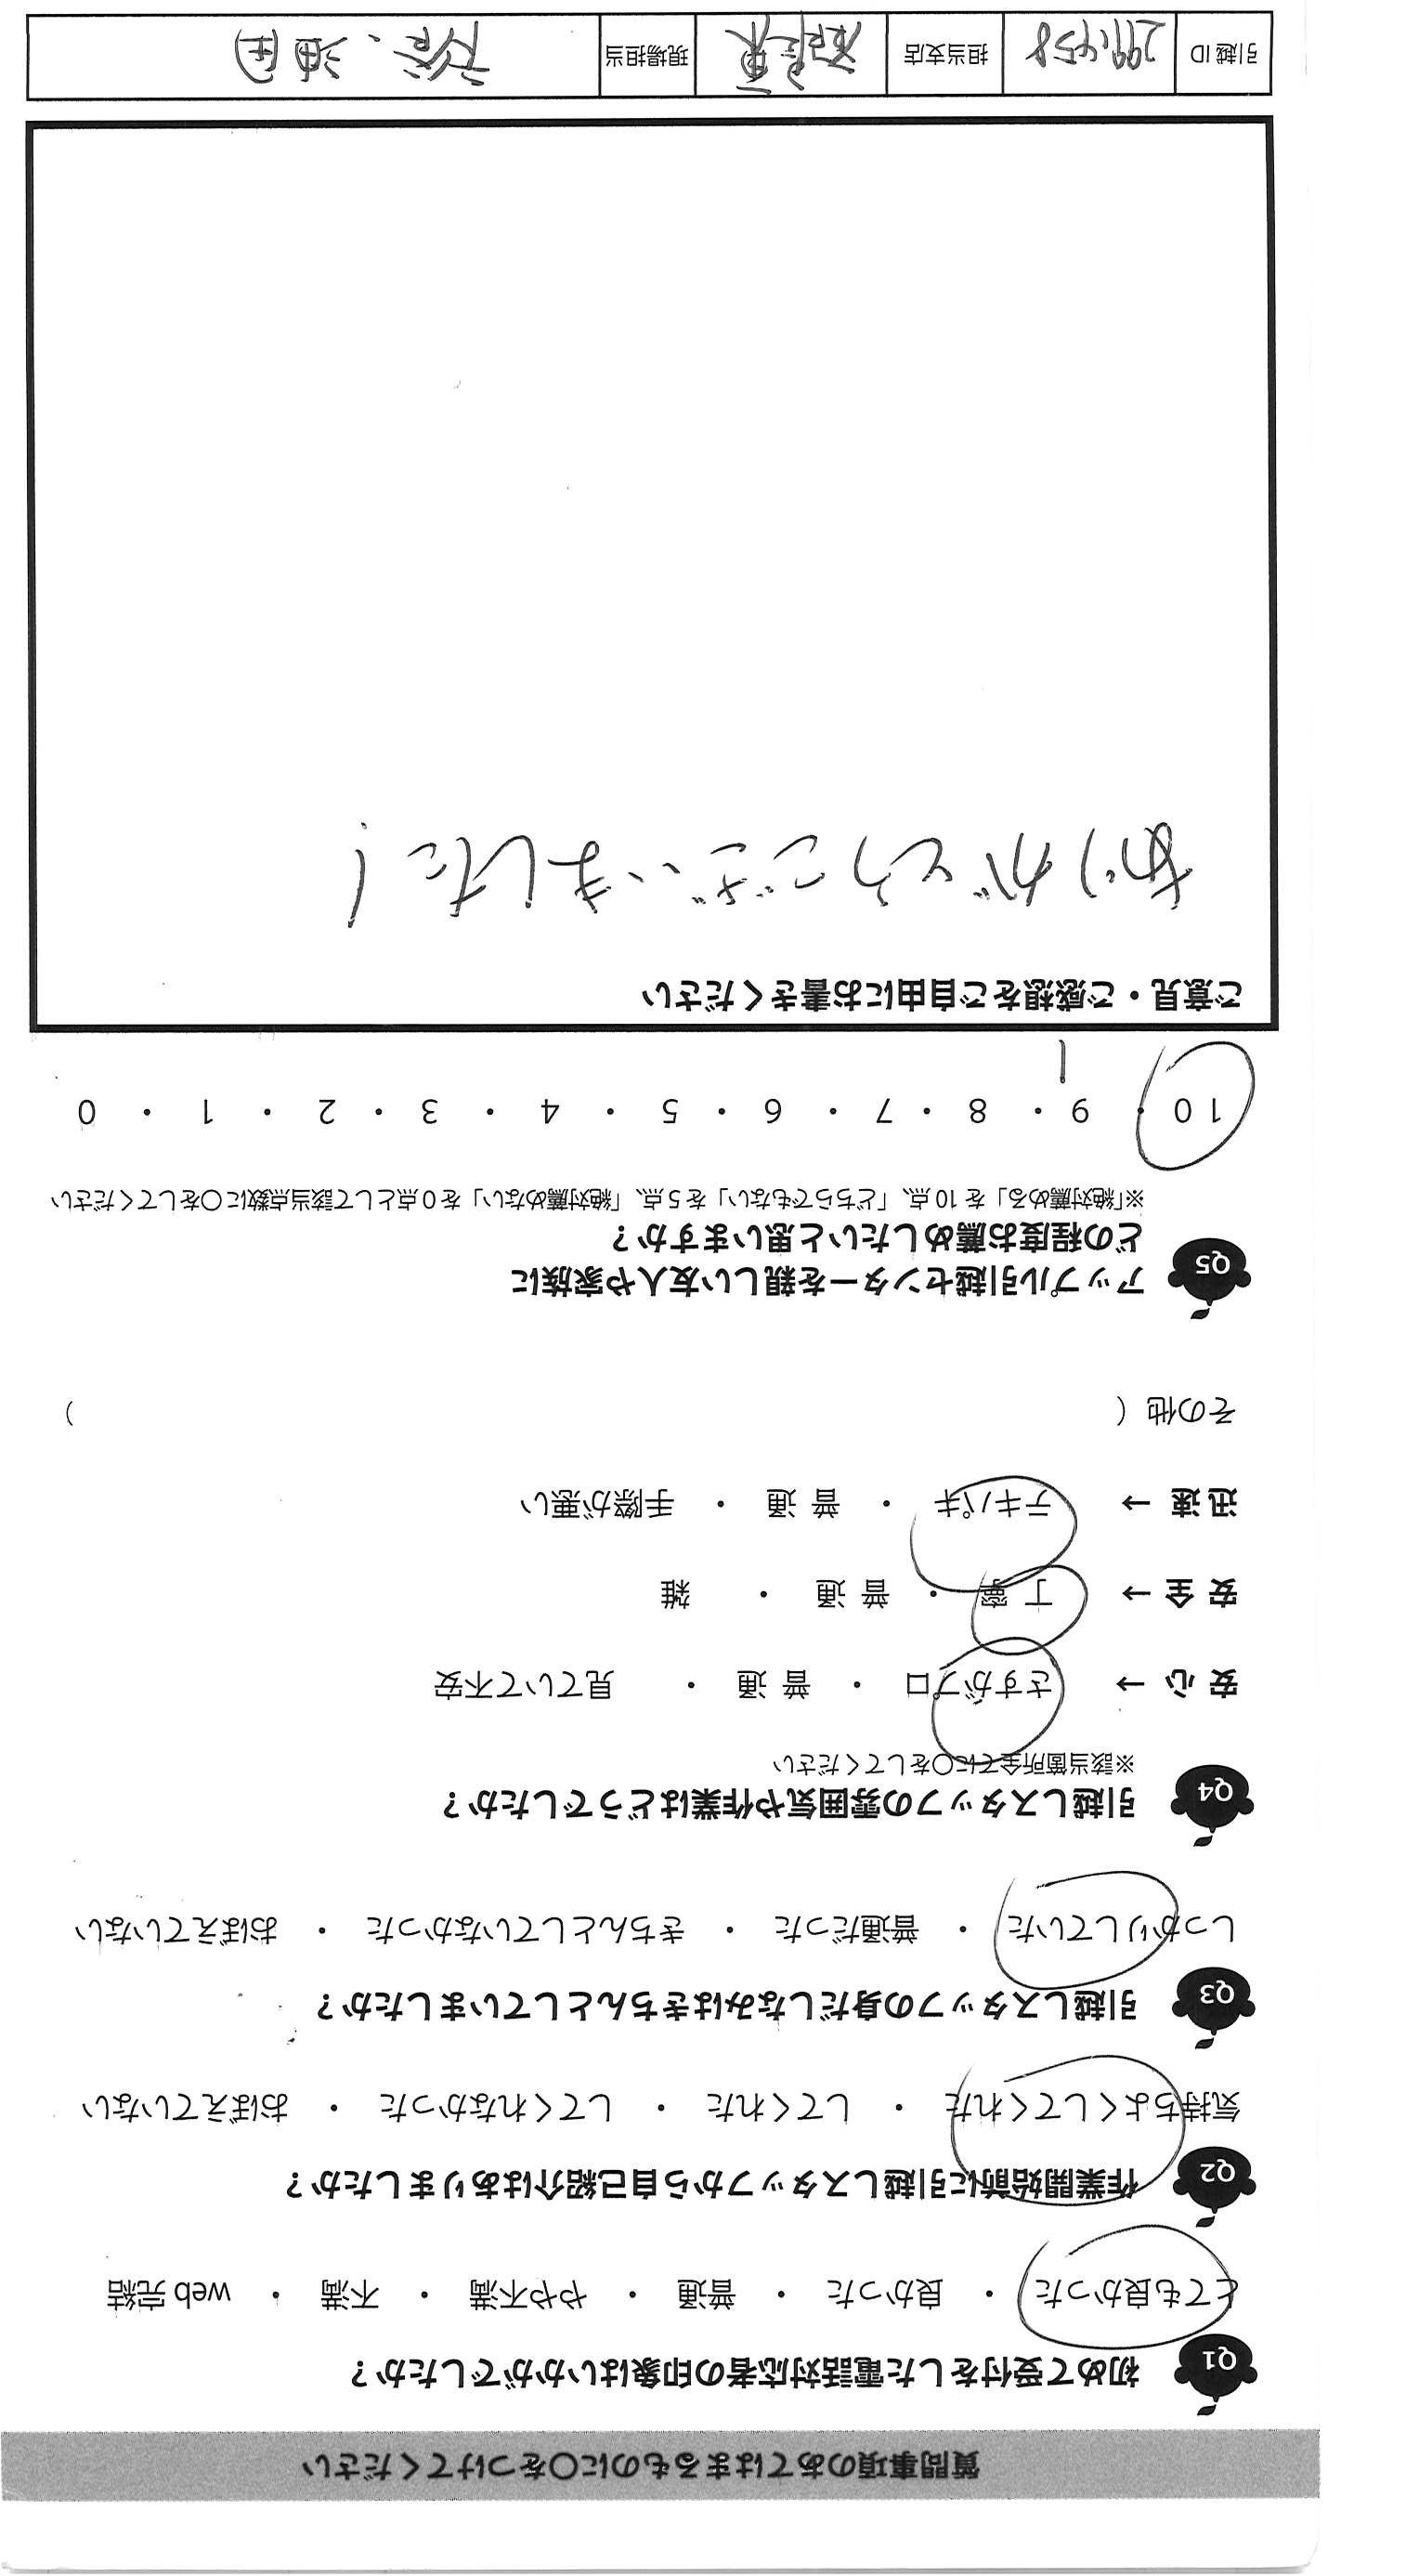 質問事項のあてはまるものに〇をつけてください
Q1 初めて受付をした電話対応者の印象はいかがでしたか？
とても良かった ・ 良かった ・ 普通 ・ やや不満 ・ 不満 ・ web 完結
Q2 作業開始前に引越しスタッフから自己紹介はありましたか？
気持ちよくしてくれた ・ してくれた ・ してくれなかった ・ おぼえていない
Q3 引越しスタッフの身だしなみはきちんとしていましたか？
しっかりしていた ・ 普通だった ・ きちんとしていなかった ・ おぼえていない
Q4 引越しスタッフの雰囲気や作業はどうでしたか？
※該当箇所全てに〇をしてください
安 心 → さすがプロ ・ 普 通 ・ 見ていて不安
安 全 → 丁 寧 ・ 普 通 ・ 雑
迅 速 → テキパキ ・ 普 通 ・ 手際が悪い
その他（ ）
Q5 アップル引越センターを親しい友人や家族に
どの程度お薦めしたいと思いますか？
※「絶対薦める」を 10 点、「どちらでもない」を 5 点、「絶対薦めない」を 0 点として該当点数に〇をしてください
10 ・ 9 ・ 8 ・ 7 ・ 6 ・ 5 ・ 4 ・ 3 ・ 2 ・ 1 ・ 0
ご意見・ご感想をご自由にお書きください
ありがとうございました！
引越 ID 担当支店 現場担当